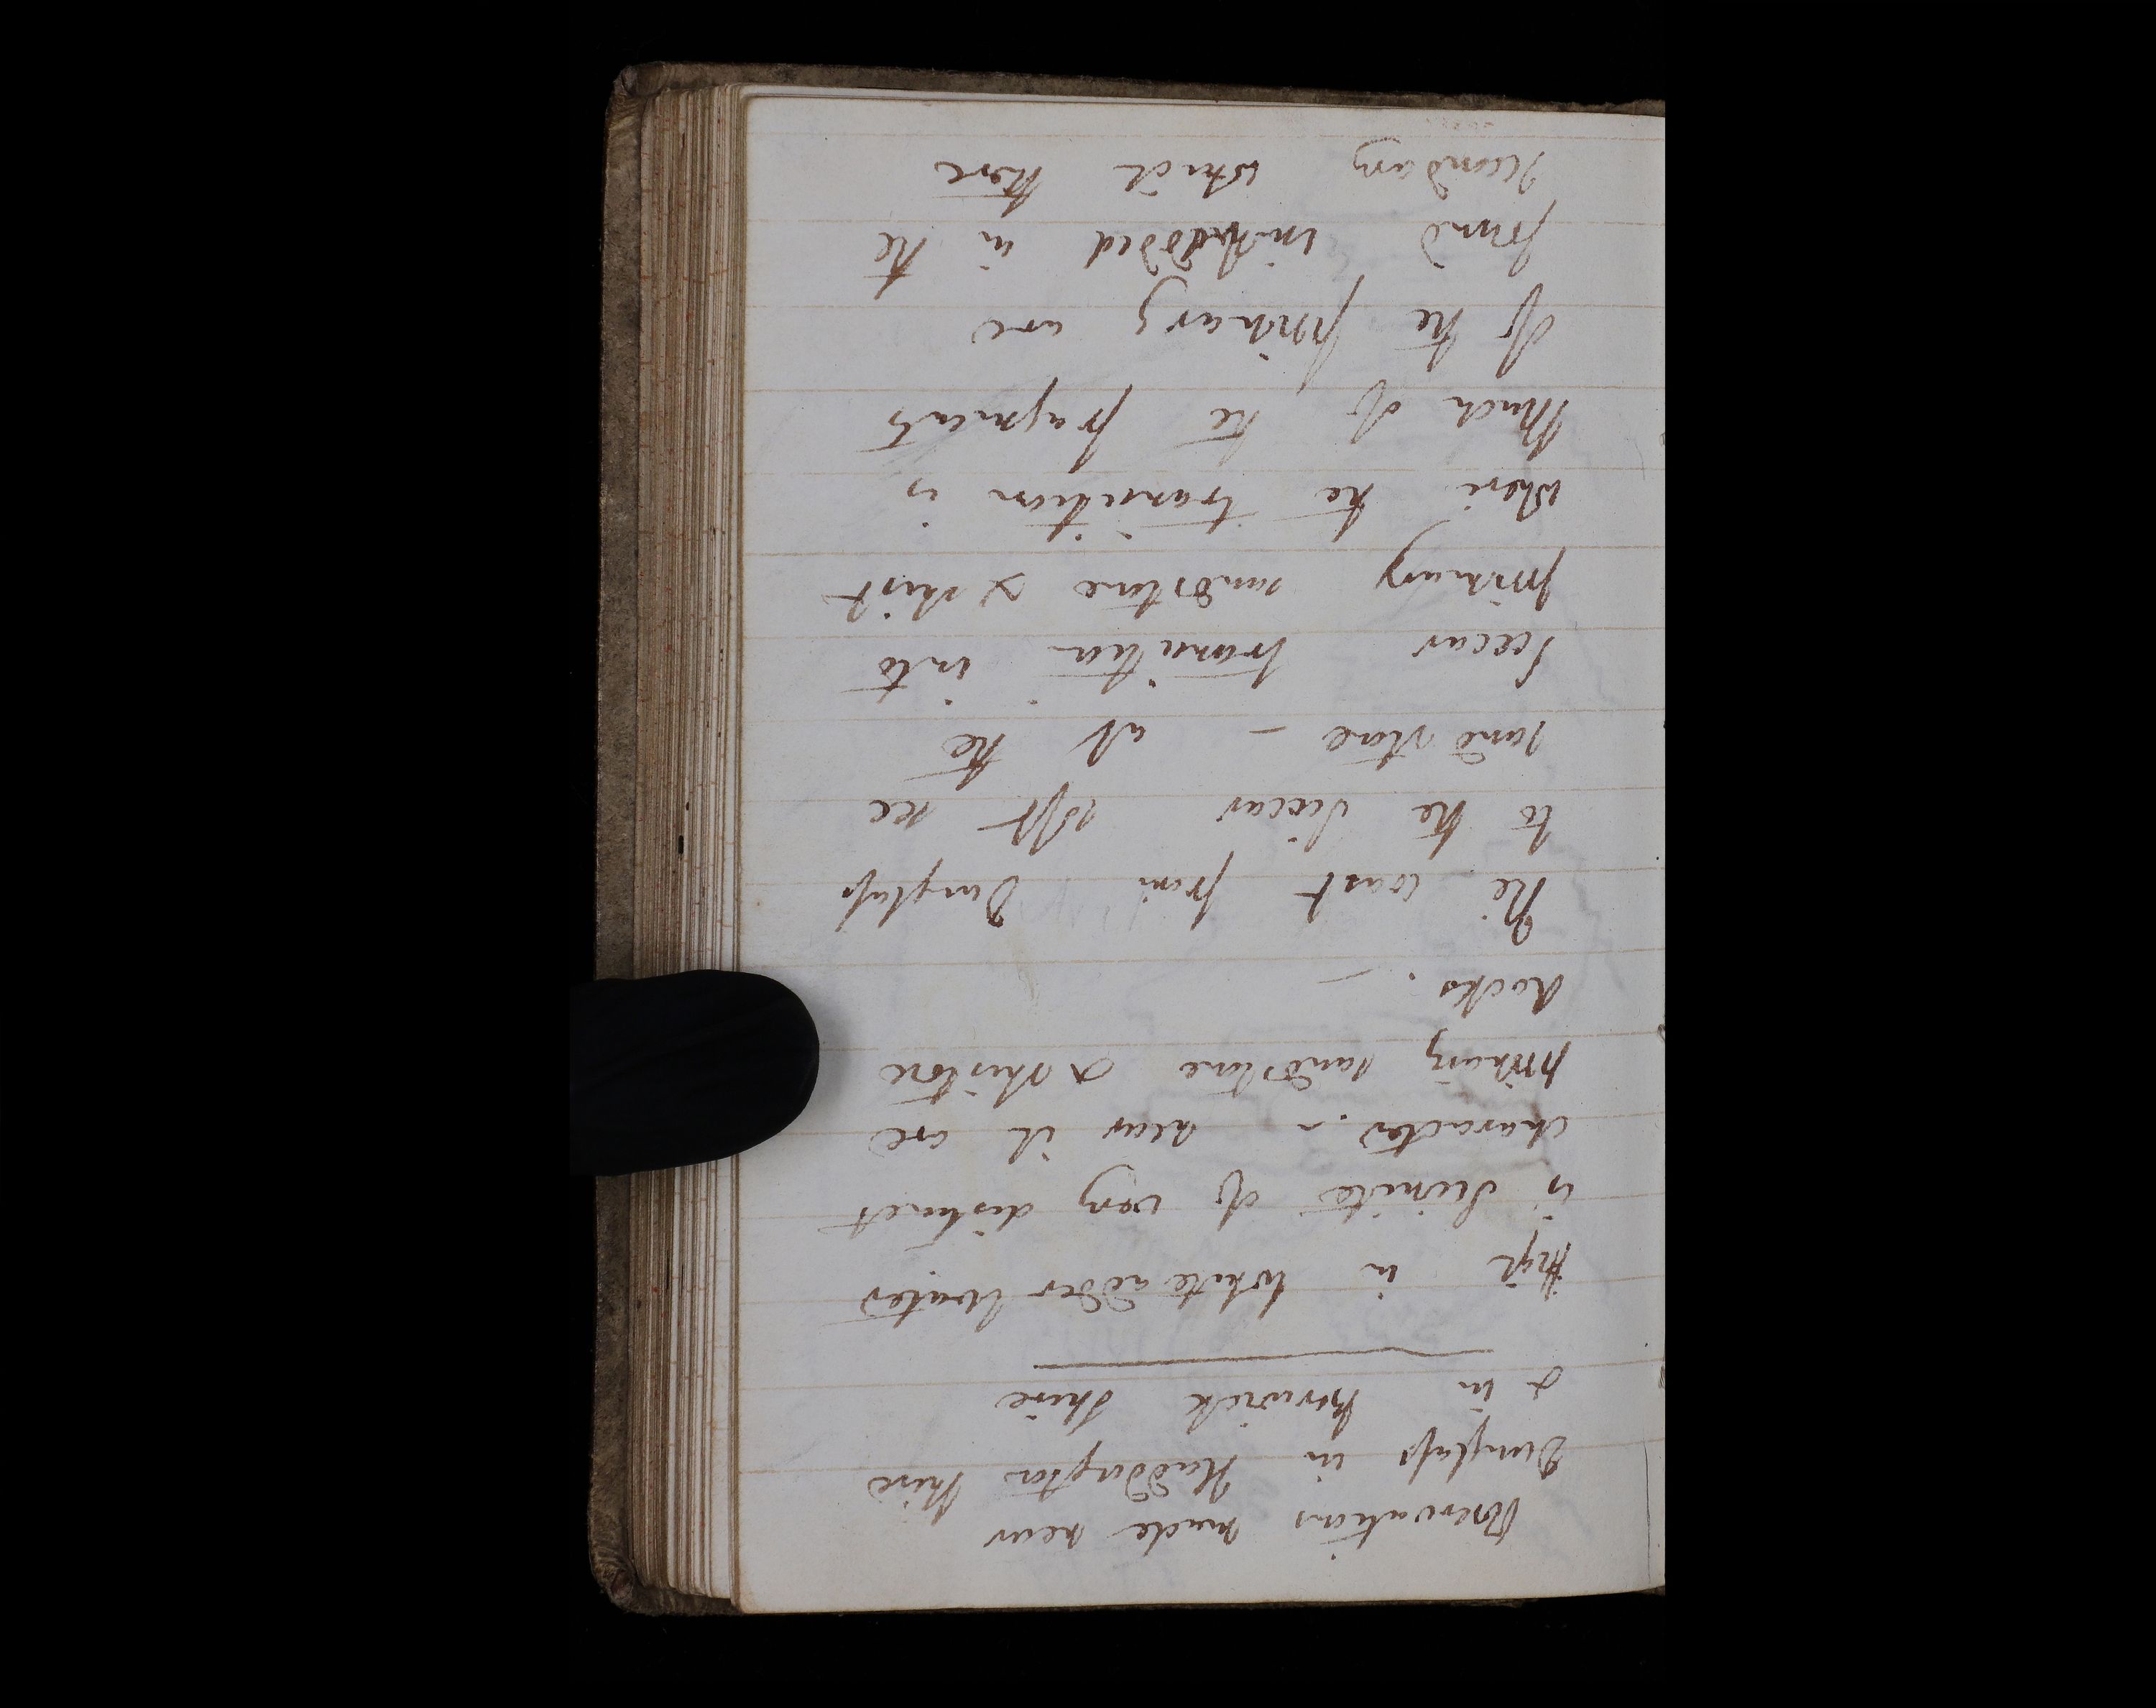 Observations made near
Dunglass in Haddington Shire
& in Berwick Shire
High in Whiteadder Water
is Sienite of very distinct
character. - near it are
primary sandstone & shistose
Rocks. -
The coast from Dunglass
to the Siccar soft sec
sand stone - at the
Siccar transition into
primary sandstone & shist
where the transition is
Much of the fragments
of the primary are
found imbedded in the
Secondary which here